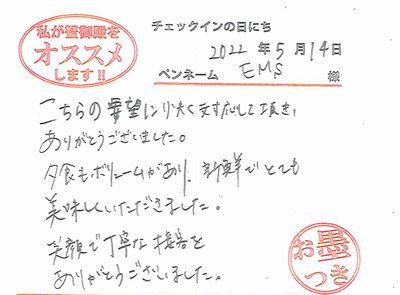 私が蜃御殿を
オススメ
します!!
チェックインの日にち
2022 年 5 月 14 日
ペンネーム EMS 様
こちらの要望に快く対応して頂き、
ありがとうございました。
夕食もボリュームがあり、新鮮でとても
美味しくいただきました。
笑顔で丁寧な接客を
ありがとうございました。
お墨
つき